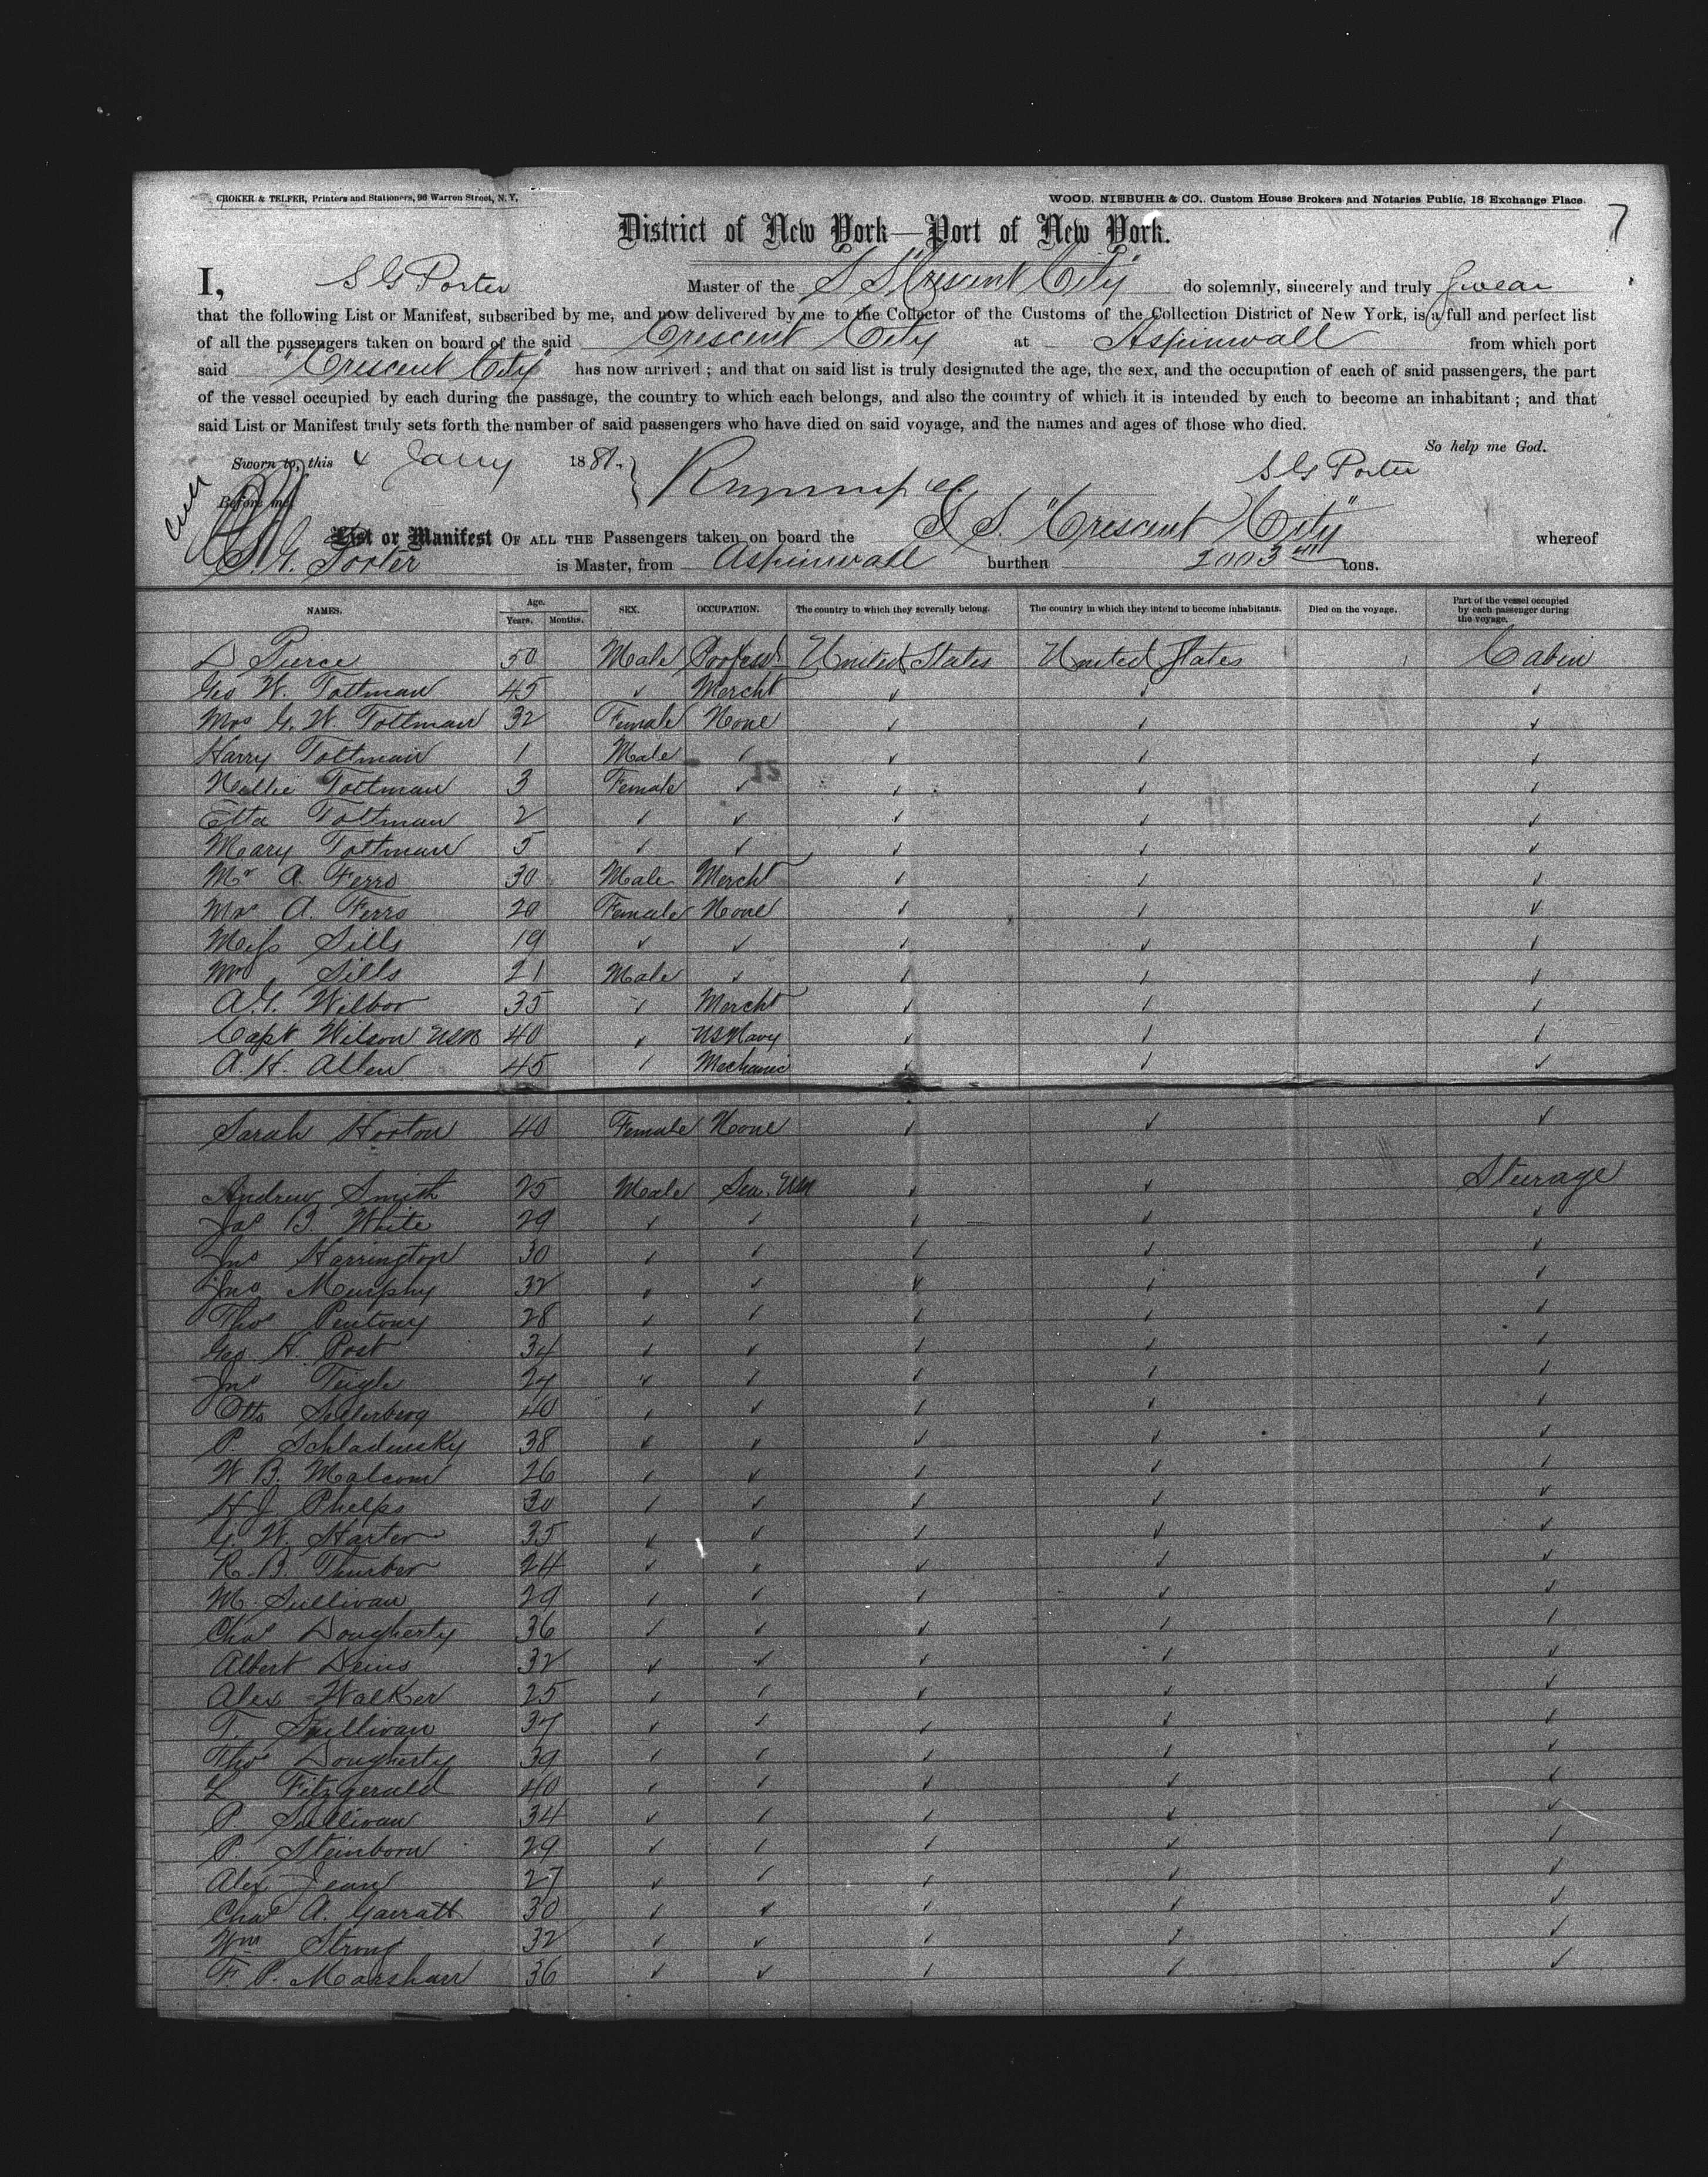 CROKER & TELFER, Printers and Stationers, 96 Warren Street, N. Y. WOOD, NIEBUHR & CO., Custom House Brokers and Notaries Public, 18 Exchange Place.
7
District of New York—Port of New York.
I, S G Porter Master of the S S "Crescent City" do solemnly, sincerely and truly swear
that the following List or Manifest, subscribed by me, and now delivered by me to the Collector of the Customs of the Collection District of New York, is a full and perfect list
of all the passengers taken on board of the said Crescent City at Aspinwall from which port
said "Crescent City" has now arrived ; and that on said list is truly designated the age, the sex, and the occupation of each of said passengers, the part
of the vessel occupied by each during the passage, the country to which each belongs, and also the country of which it is intended by each to become an inhabitant ; and that
said List or Manifest truly sets forth the number of said passengers who have died on said voyage, and the names and ages of those who died.
So help me God.
Sworn to, this 4 Jany 1881. S G Porter
Before me,
List or Manifest OF ALL THE Passengers taken on board the S S. "Crescent City" whereof
S. G. Porter is Master, from Aspinwall burthen 2003 tons.
NAMES. Age. Years. Months. SEX. OCCUPATION. The country to which they severally belong. The country in which they intend to become inhabitants. Died on the voyage. Part of the vessel occupied by each passenger during the voyage.
D Pierce 50 Male Profess United States United States Cabin
Geo W. Tottman 45 ✓ Mercht ✓ ✓ ✓
Mrs G. W. Tottman 32 Female None ✓ ✓ ✓
Harry Tottman 1 Male ✓ ✓ ✓ ✓
Nellie Tottman 3 Female ✓ ✓ ✓ ✓
Etta Tottman 2 ✓ ✓ ✓ ✓ ✓
Mary Tottman 5 ✓ ✓ ✓ ✓ ✓
Mr A. Ferro 30 Male Mercht ✓ ✓ ✓
Mrs A. Ferro 20 Female None ✓ ✓ ✓
Miss Sills 19 ✓ ✓ ✓ ✓ ✓
Mr Sills 21 Male ✓ ✓ ✓ ✓
A. G. Wilbor 35 ✓ Mercht ✓ ✓ ✓
Capt Wilson USN 40 ✓ US Navy ✓ ✓ ✓
A. H. Allen 45 ✓ Mechanic ✓ ✓ ✓
Sarah Horton 40 Female None ✓ ✓ ✓
Andrew Smith 25 Male Sea. USN ✓ ✓ Steerage
Jas B White 29 ✓ ✓ ✓ ✓ ✓
Jno Harrington 30 ✓ ✓ ✓ ✓ ✓
Jno Murphy 32 ✓ ✓ ✓ ✓ ✓
Thos Pentony 28 ✓ ✓ ✓ ✓ ✓
Geo H. Post 34 ✓ ✓ ✓ ✓ ✓
Jno Teigh 27 ✓ ✓ ✓ ✓ ✓
Otto Sellerberg 40 ✓ ✓ ✓ ✓ ✓
P. Schladinsky 38 ✓ ✓ ✓ ✓ ✓
W. B. Malcom 26 ✓ ✓ ✓ ✓ ✓
H J Phelps 30 ✓ ✓ ✓ ✓ ✓
G. W. Harter 35 ✓ ✓ ✓ ✓ ✓
R. B. Thurber 24 ✓ ✓ ✓ ✓ ✓
M. Sullivan 29 ✓ ✓ ✓ ✓ ✓
Chas Dougherty 36 ✓ ✓ ✓ ✓ ✓
Albert Deius 32 ✓ ✓ ✓ ✓ ✓
Alex Walker 25 ✓ ✓ ✓ ✓ ✓
T. Sullivan 37 ✓ ✓ ✓ ✓ ✓
Thos Dougherty 39 ✓ ✓ ✓ ✓ ✓
L Fitzgerald 40 ✓ ✓ ✓ ✓ ✓
P. Sullivan 34 ✓ ✓ ✓ ✓ ✓
P. Steinborn 29 ✓ ✓ ✓ ✓ ✓
Alex Jean 27 ✓ ✓ ✓ ✓ ✓
Chas A. Garratt 30 ✓ ✓ ✓ ✓ ✓
Wm Strong 32 ✓ ✓ ✓ ✓ ✓
F. P. Marsharr 36 ✓ ✓ ✓ ✓ ✓